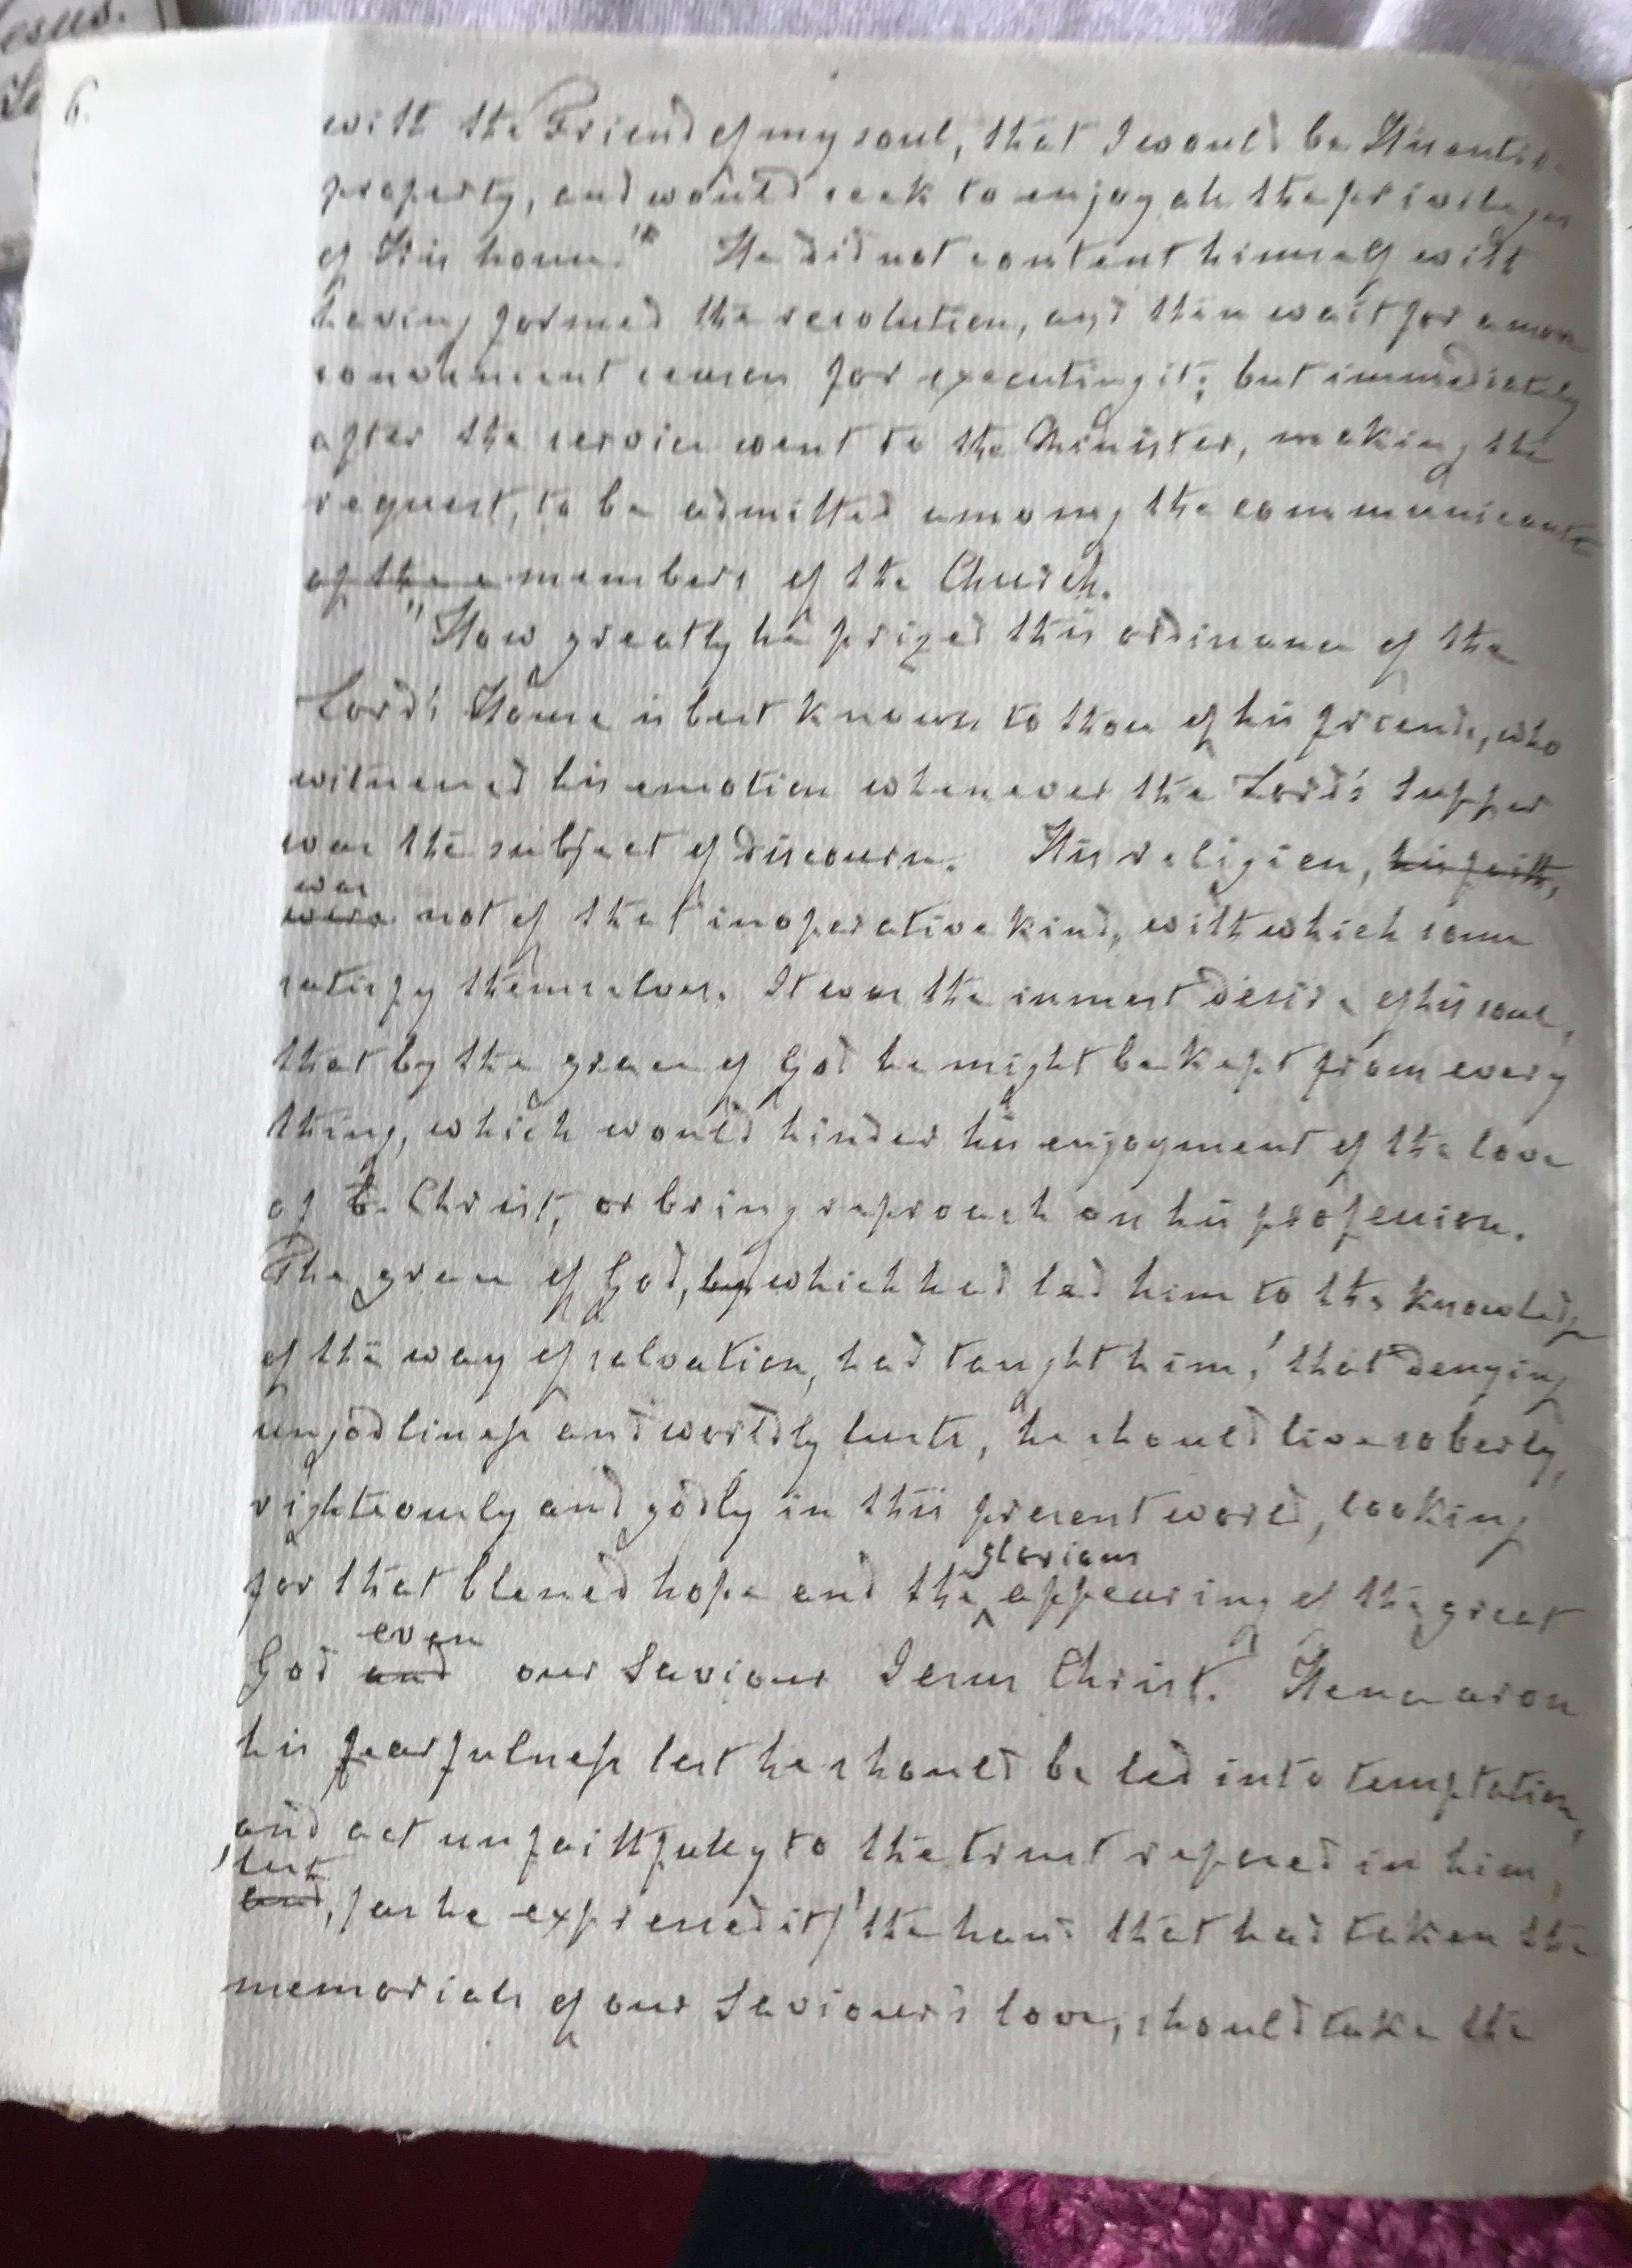 esus.
6.
with the Friend of my soul, that I would be His entire
property, and would seek to enjoy all the privileges
of His house." He did not content himself with
having formed the resolution, and then wait for a more
convenient season for executing it; but immediately
after the service went to the Minister, making the
request, to be admitted among the communicants
of the members of the Church.
"How greatly he prized this ordinance of the
Lord's House is best known to those of his friends, who
witnessed his emotion whenever the Lord's Supper
was the subject of discourse. His religion, his faith,
was
were not of that inoperative kind, with which some
satisfy themselves. It was the inmost desire of his soul,
that by the grace of God he might be kept from every
thing, which would hinder his enjoyment of the love
of Christ, or bring reproach on his profession.
The grace of God, by which had led him to the knowledge
of the way of salvation, had taught him, 'that denying
ungodliness and worldly lusts, he should live soberly,
righteously and godly in this present world, looking
glorious
for that blessed hope and the appearing of the great
even
God and our Saviour Jesus Christ. Hence arose
his fearfulness lest he should be led into temptation,
and act unfaithfully to the trust reposed in him,
lest
and, (as he expressed it) 'the hand that had taken the
memorials of our Saviour's love, should take the